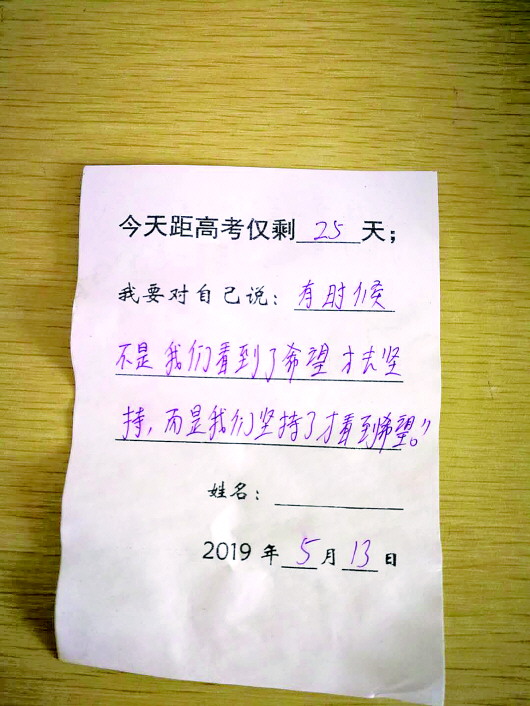 今天距高考仅剩 25 天；
我要对自己说：有时候
不是我们看到了希望才去坚
持，而是我们坚持了才看到希望。”
姓名：
2019 年 5 月 13 日